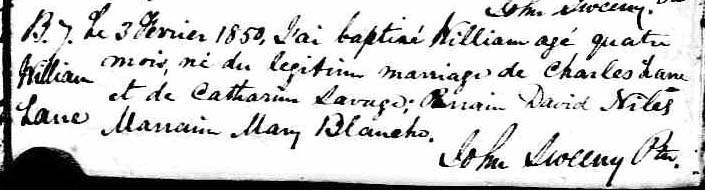 John Sweeny.
B. 7. Le 3 Fevrier 1850, J'ai baptisé William agé quatre
William mois, né du legitim marriage de Charles Lane
Lane et de Catharine Savage; Parrain David Niles
Marraine Mary Blanche.
John Sweeny Ptr.